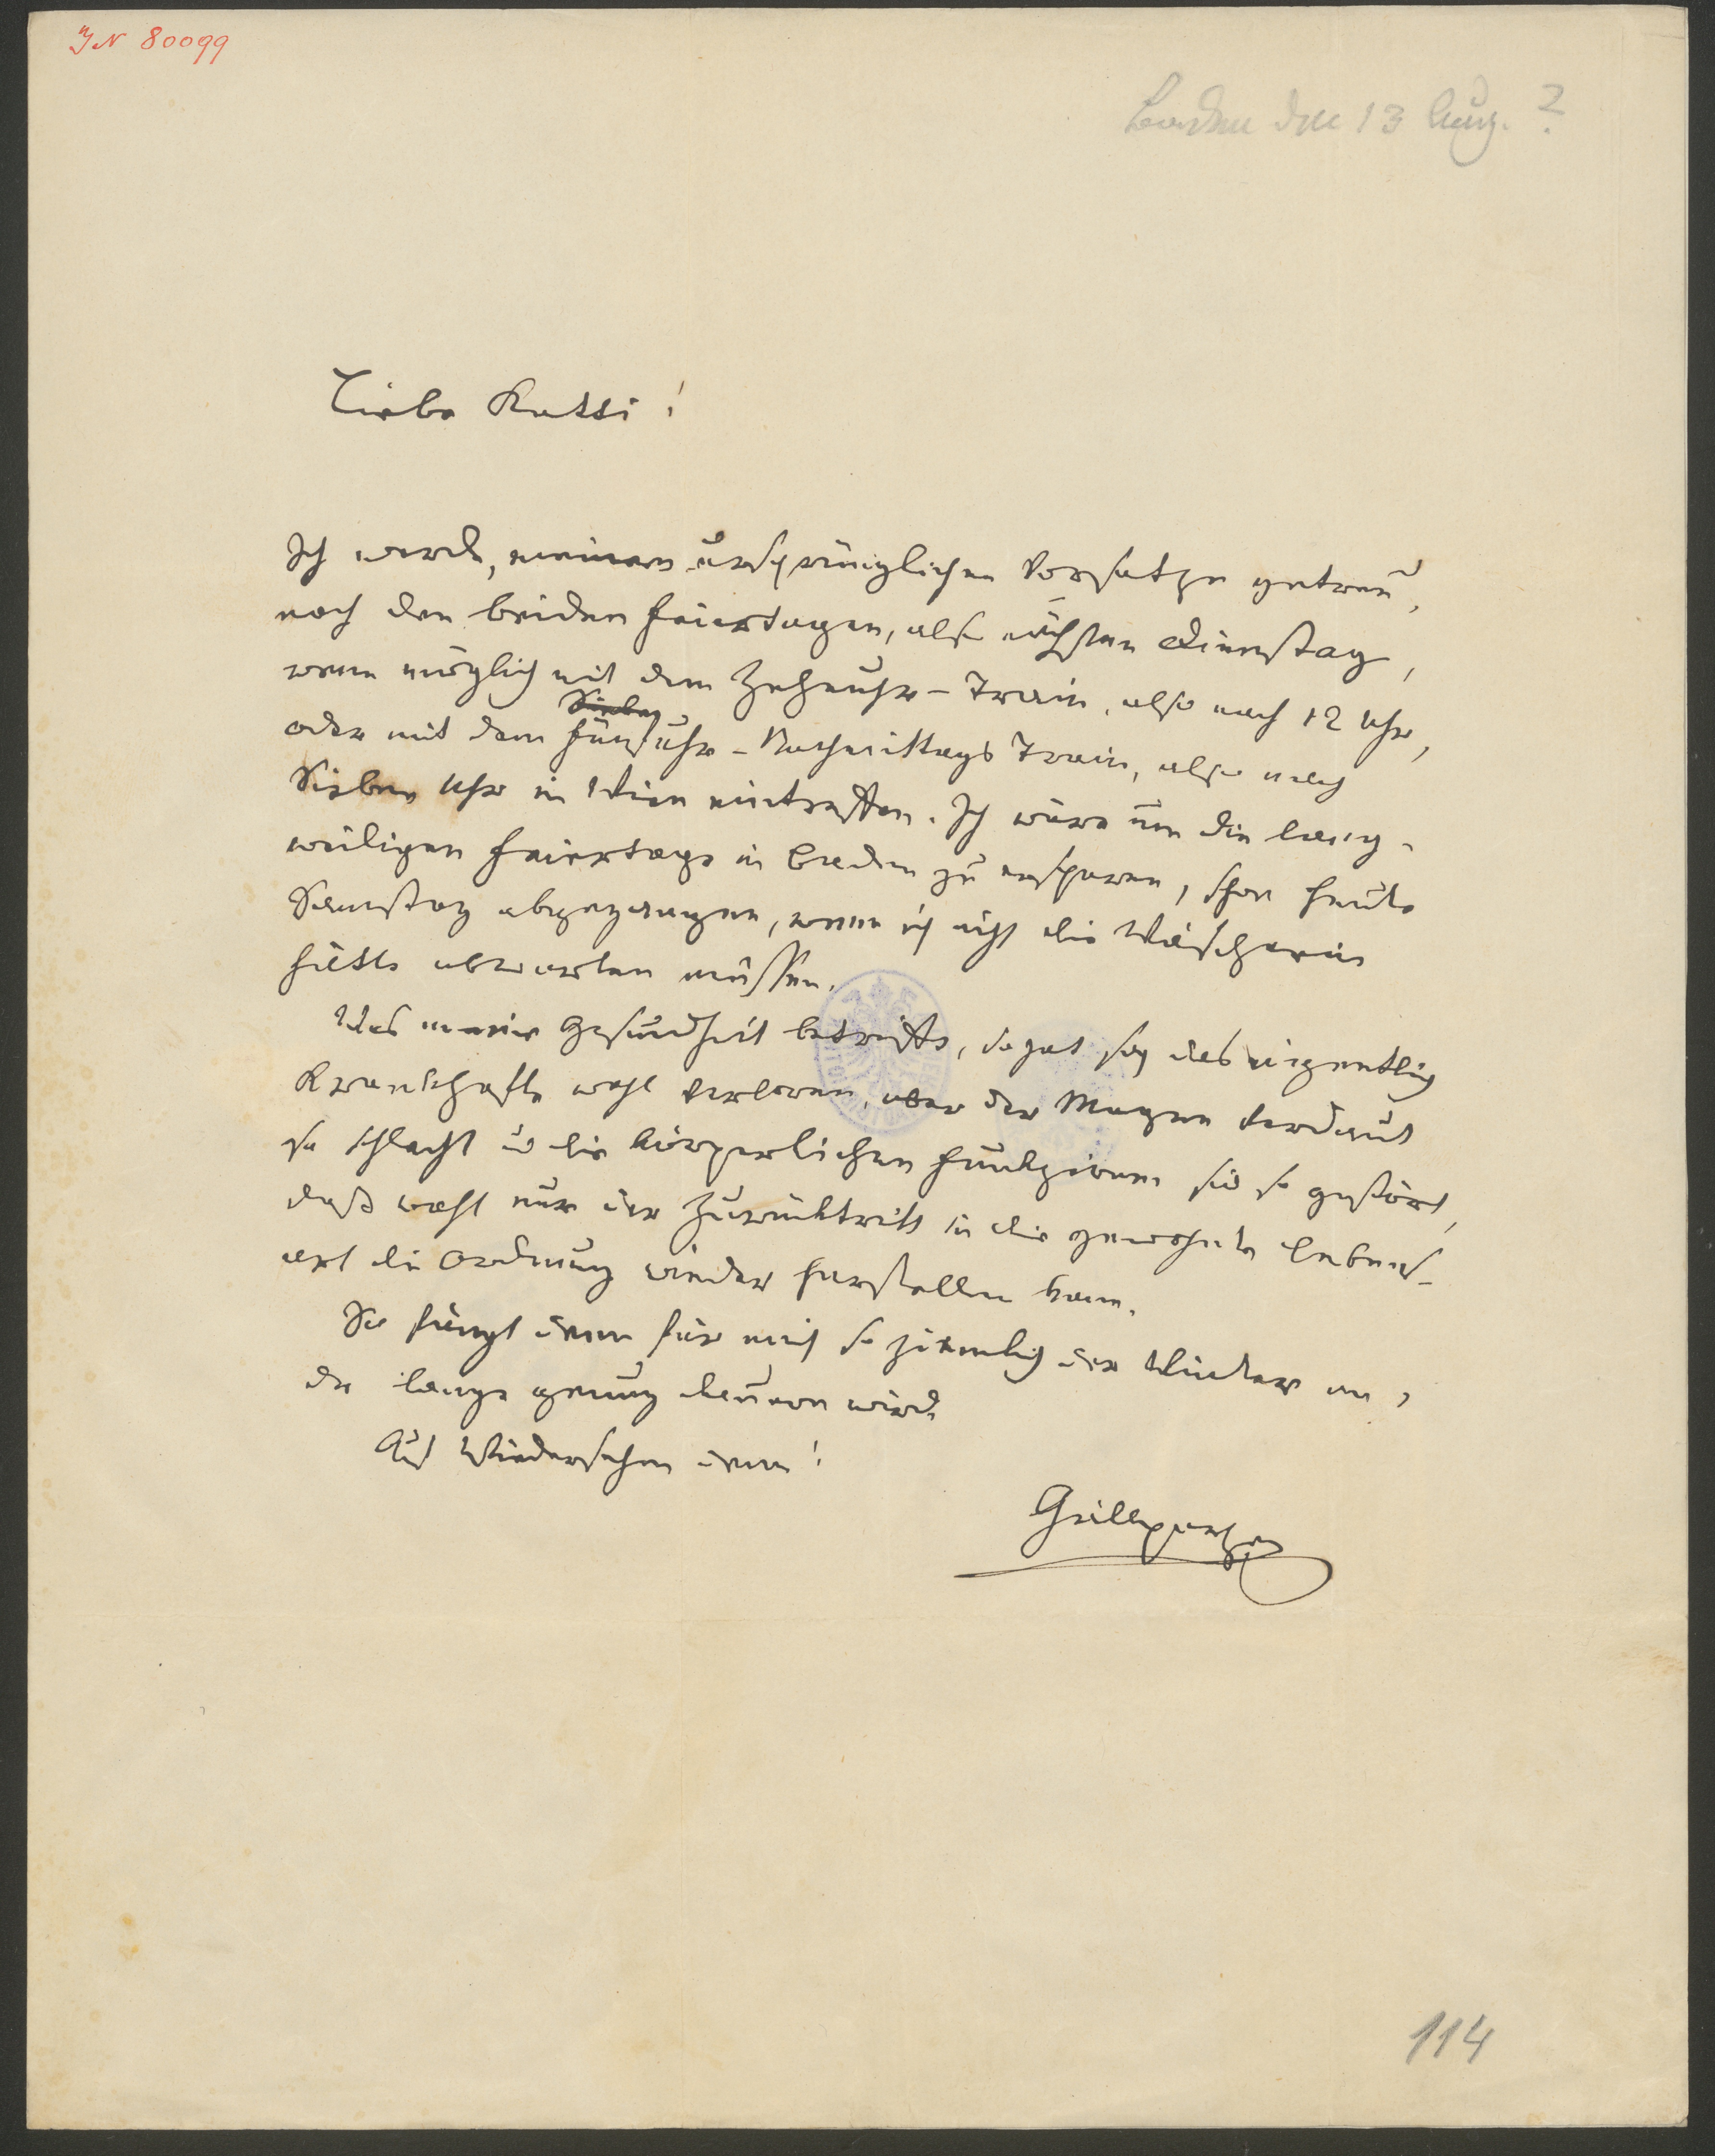 IN 80099
Baden den 13 Aug. ?
Liebe Katti!
Ich werde, meinem ursprünglichen Vorsatze getreu,
nach den beiden Feiertagen, also nächsten Dienstag,
wenn möglich mit dem Zehnuhr-Train, also nach 12 Uhr,
Sieben
oder mit dem fünfuhr-Nachmittags Train, also nach
Sieben Uhr in Wien eintreffen. Ich wäre um die lang-
weiligen Feiertage in Baden zu ersparen, schon heute
Samstag abgegangen, wenn ich nicht die Wäscherin
hätte abwarten müssen.
Was meine Gesundheit betrifft, so hat sich das eigentlich
Krankhafte wohl verloren, aber der Magen verdaut
so schlecht u die körperlichen Funkzionen sind so gestört,
daß wohl nur der Zurücktritt in die gewohnte Lebens-
art die Ordnung wieder herstellen kann.
So fängt denn für mich so ziemlich der Winter an,
der lange genug dauern wird.
Auf Wiedersehen denn!
Grillparzer
114